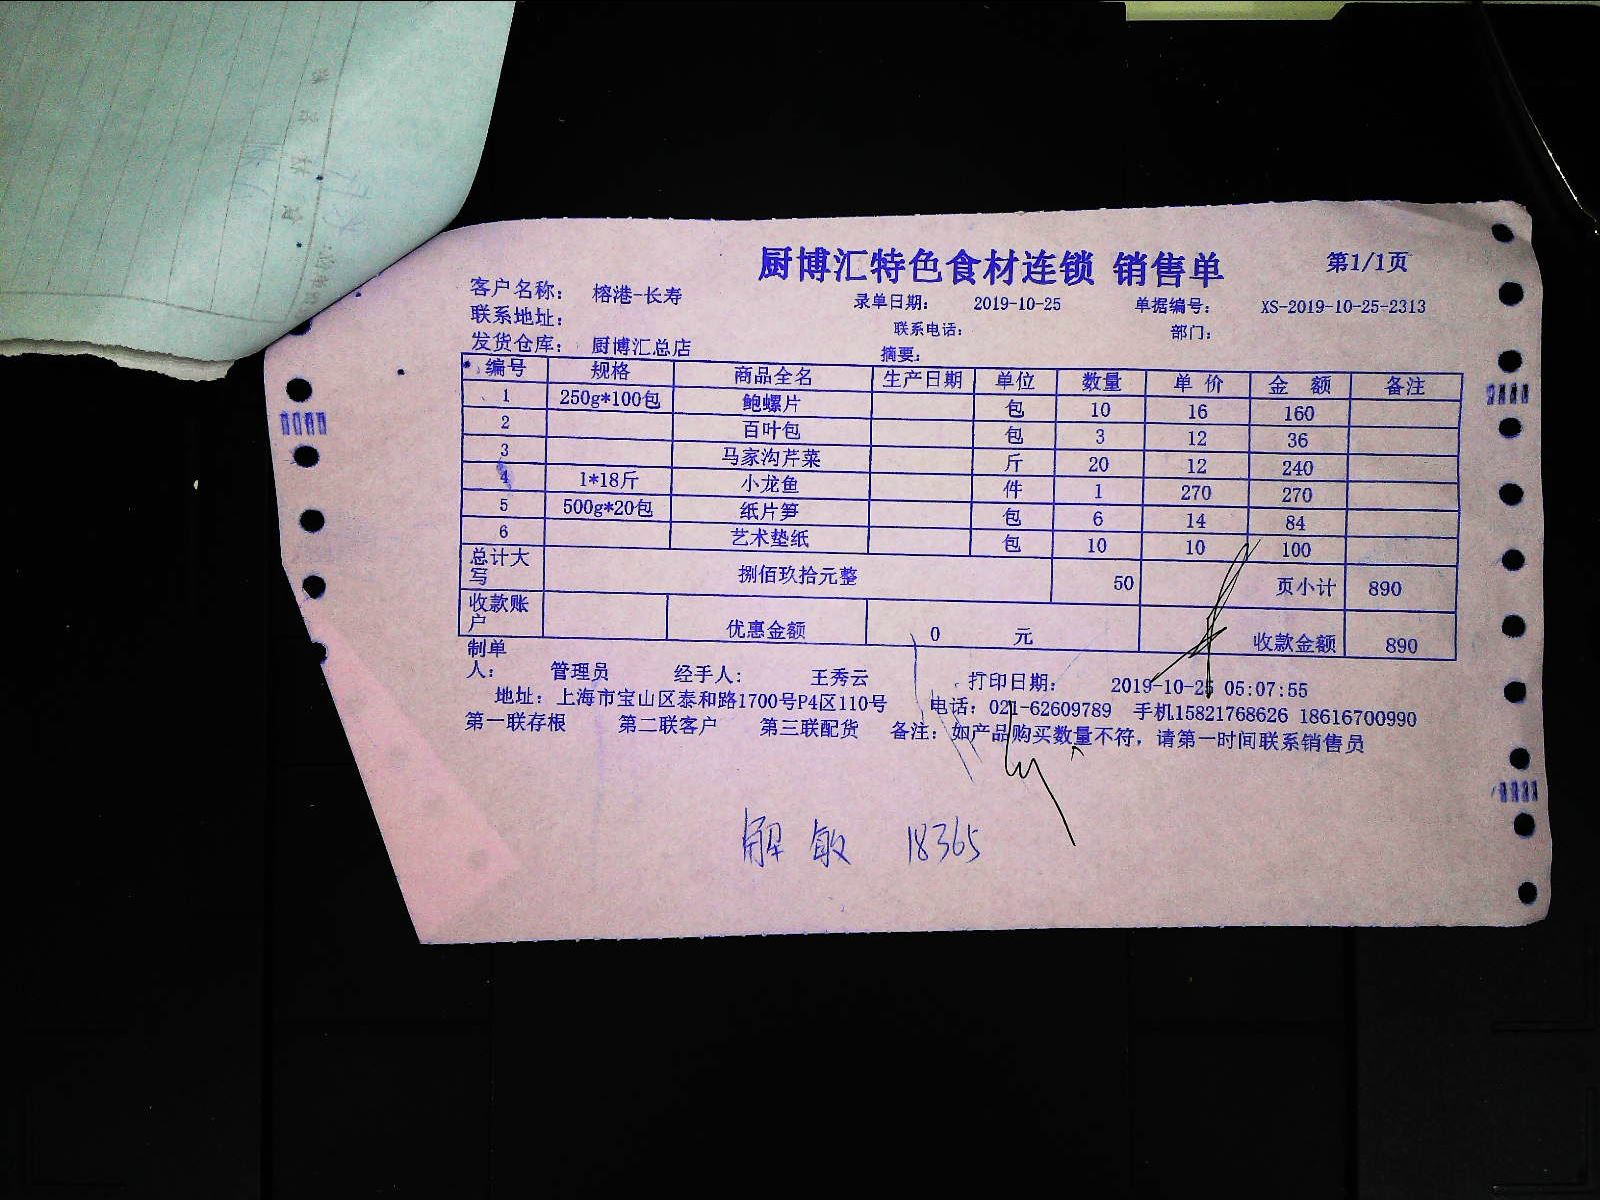 厨博汇特色食材连锁 销售单 第1/1页
客户名称: 榕港-长寿 录单日期: 2019-10-25 单据编号: XS-2019-10-25-2313
联系地址: 联系电话: 部门:
发货仓库: 厨博汇总店 摘要:
编号 规格 商品全名 生产日期 单位 数量 单 价 金 额 备注
1 250g*100包 鲍螺片 包 10 16 160
2 百叶包 包 3 12 36
3 马家沟芹菜 斤 20 12 240
4 1*18斤 小龙鱼 件 1 270 270
5 500g*20包 纸片笋 包 6 14 84
6 艺术垫纸 包 10 10 100
总计大写 捌佰玖拾元整 50 页小计 890
收款账户 优惠金额 0 元 收款金额 890
制单人: 管理员 经手人: 王秀云 打印日期: 2019-10-25 05:07:55
地址: 上海市宝山区泰和路1700号P4区110号 电话: 021-62609789 手机15821768626 18616700990
第一联存根 第二联客户 第三联配货 备注: 如产品购买数量不符, 请第一时间联系销售员
解敏 18365